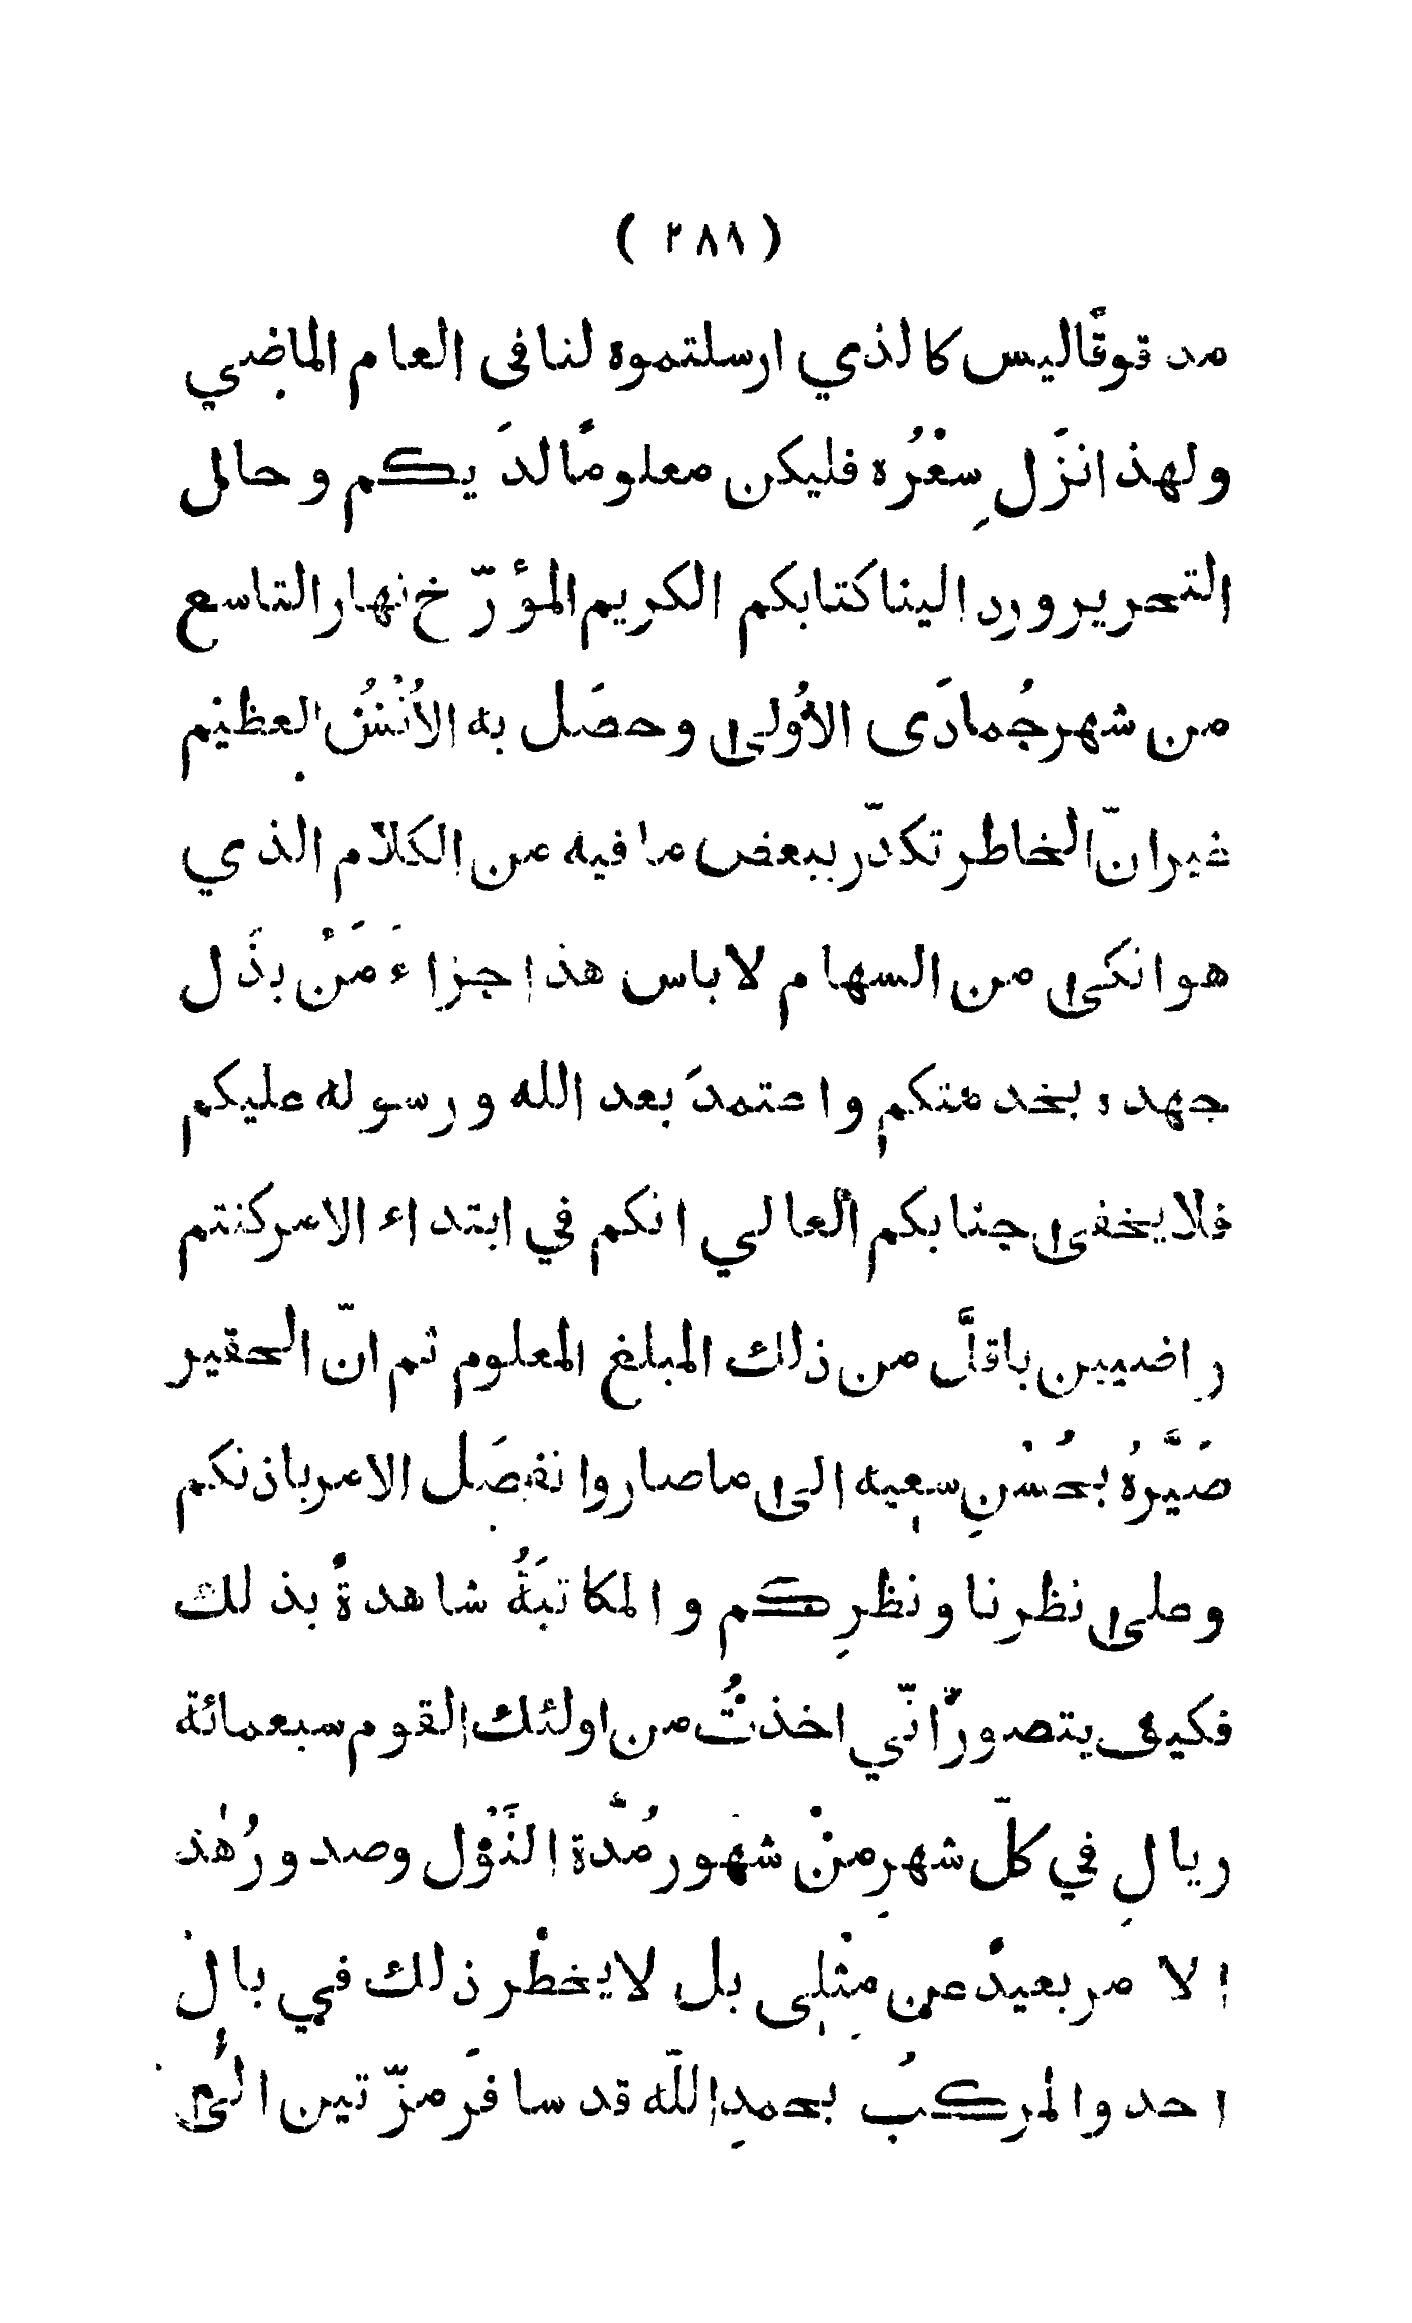 ( ٢٨٩ )
مدقوقًا ليس كالذي ارسلتموه لنا فى العام الماضي
ولهذا نزَل سِعْرُه فليكن معلومًا لدَيكم وحال
التحرير ورد الينا كتابكم الكريم المؤرّخ نهار التاسع
من شهر جُمادَى الأُولىٰ وحصَل به الأُنْسُ العظيم
غير انّ الخاطر تكدّر ببعض ما فيه من الكلام الذي
هو انكىٰ من السهام لا باس هذا جزاءَ مَنْ بذَل
جهده بخدمتكم واعتمدَ بعد الله ورسوله عليكم
فلا يخفىٰ جنابكم العالي انكم في ابتداء الامر كنتم
راضيين باقلَّ من ذلك المبلغ المعلوم ثم انّ الحقير
صَيَّرهُ بحُسْنِ سعيه الىٰ ما صار وانفصَل الامر باذنكم
وعلىٰ نظرنا ونظرِكم والمكاتبَةُ شاهدةٌ بذلك
فكيف يتصورّ انّي اخذتُ من اولئك القوم سبعمائة
ريالِ في كلّ شهرِ منْ شهور مُدَّة النَّوْل وصدورُ هٰذ
الامر بعيدٌ عن مِثْلى بل لا يخطْر ذلك في بال
احد والمركبُ بحمدِ اللّه قد سافَر مرّتين الىٰ